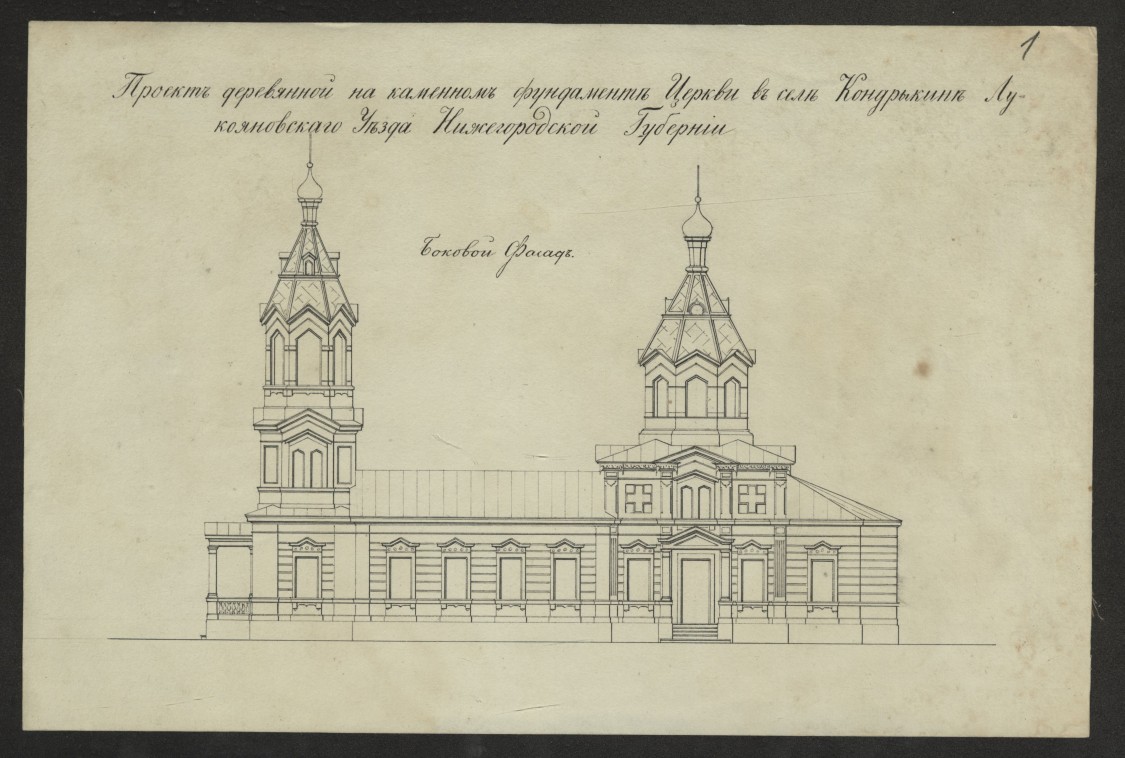 1
Проектъ деревянной на каменномъ фундаментѣ Церкви въ селѣ Кондрыкинѣ Лу-
кояновскаго Уѣзда Нижегородской Губерніи
Боковой Фасадъ.